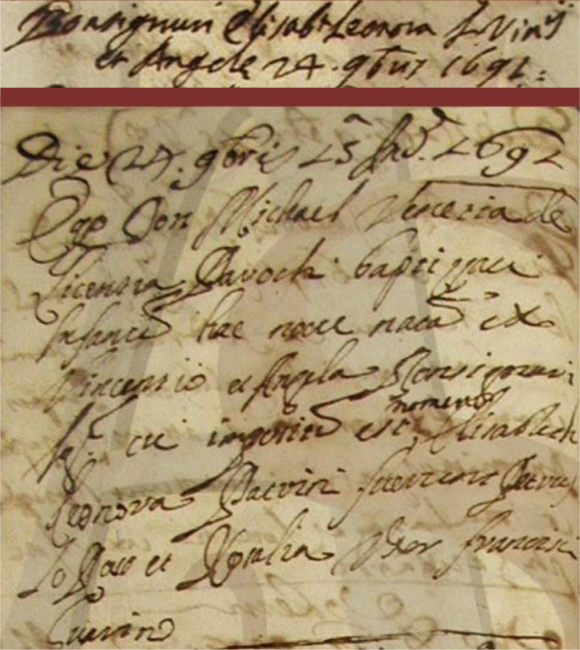 Bonsignuri Elisab: Leonora di Vin:
et Angele 24. 9bris 1691:
Die 24. 9bris 15 Ind. 1691
Ego Don Michael Veneria de
licentia Parochi baptizavi
Infante hac nocte nata ex
Vincentio et Angela Bonsignuri
cui impositū est nomen Elisabeth
Leonora Patrini fuerunt Petrus
lo et Natalia uxor Francisci
Guarino